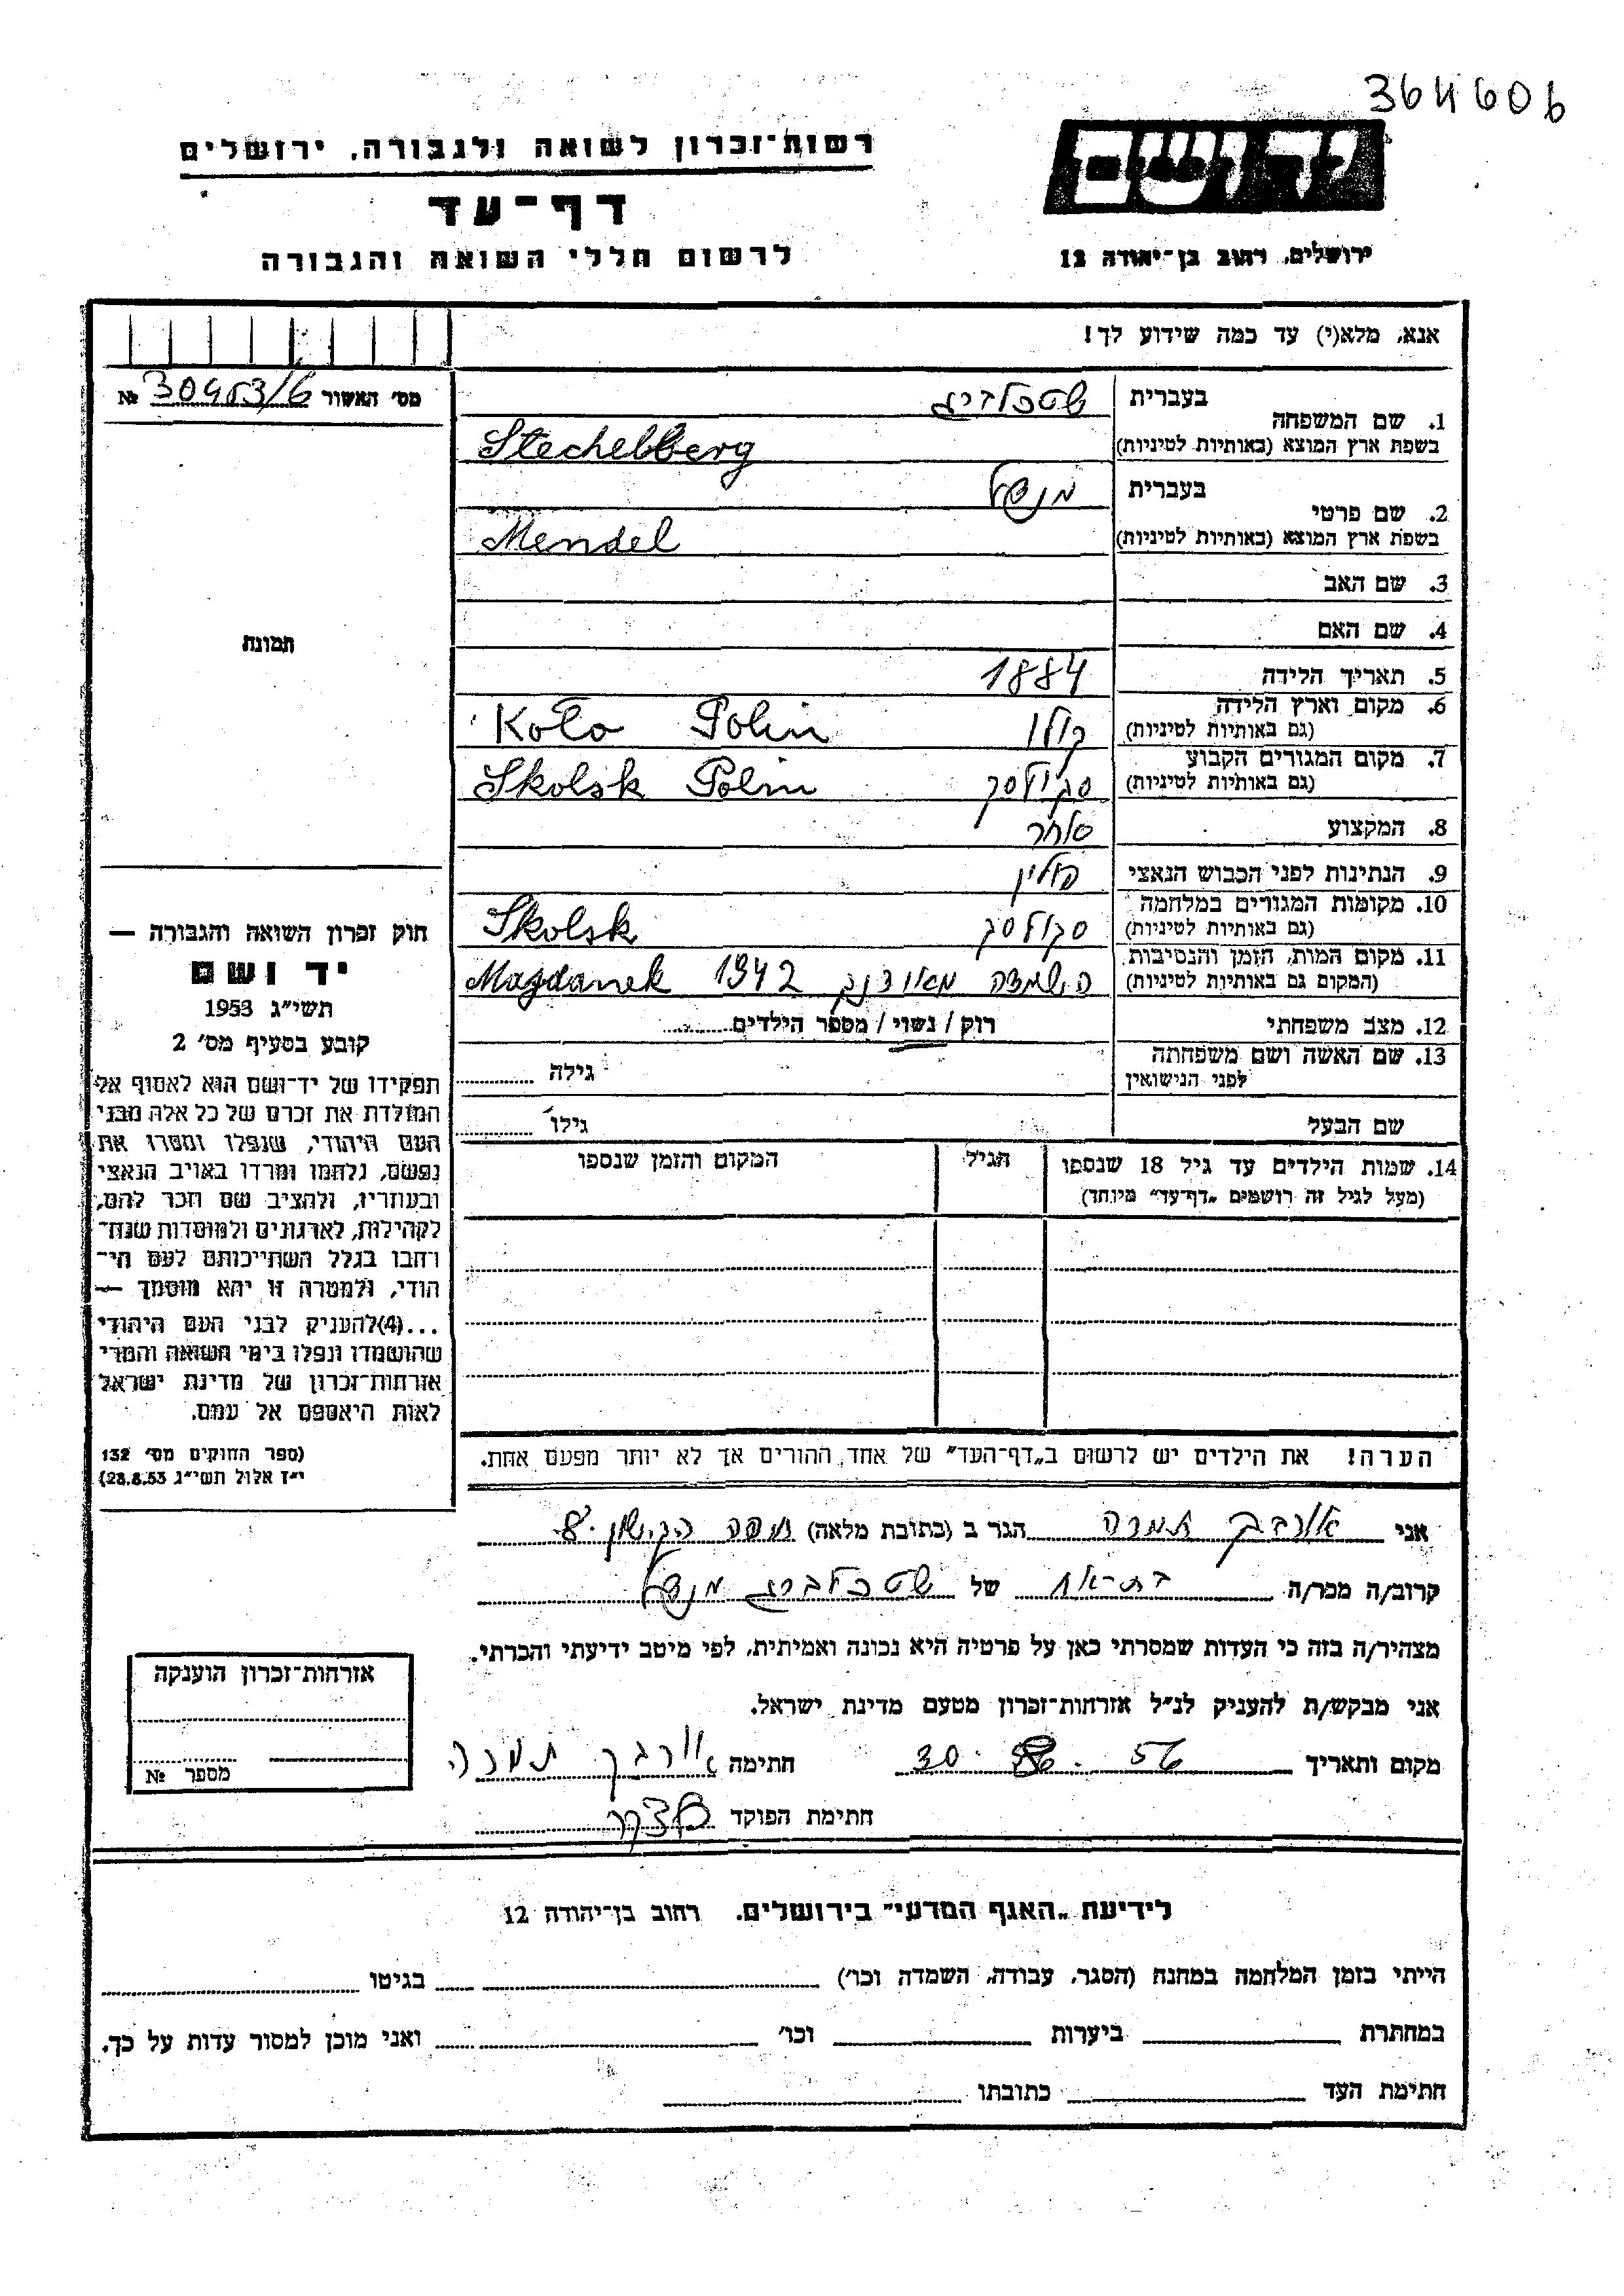 364606
רשות־זכרון לשואה ולגבורה, ירושלים
יד ושם
דף־עד
לרשום חללי השואה והגבורה
ירושלים, רחוב בן־יהודה 12
אנא, מלא(י) עד כמה שידוע לך!
מס' האשור 30453/6 №
1. שם המשפחה
בעברית שטכלברג
בשפת ארץ המוצא (באותיות לטיניות) Stechelberg
2. שם פרטי
בעברית מנדל
בשפת ארץ המוצא (באותיות לטיניות) Mendel
3. שם האב
4. שם האם
תמונה
5. תאריך הלידה 1884
6. מקום וארץ הלידה
(גם באותיות לטיניות) קולו Koło Polin
7. מקום המגורים הקבוע
(גם באותיות לטיניות) סקולסק Skolsk Polin
8. המקצוע סוחר
9. הנתינות לפני הכבוש הנאצי פולין
10. מקומות המגורים במלחמה
(גם באותיות לטיניות) סקולסק Skolsk
11. מקום המות, הזמן והנסיבות
(המקום גם באותיות לטיניות) השמדה 1942 Magdanek
12. מצב משפחתי רוק / נשוי / מספר הילדים
13. שם האשה ושם משפחתה
לפני הנישואין גילה
שם הבעל גילו
14. שמות הילדים עד גיל 18 שנספו הגיל המקום והזמן שנספו
(מעל לגיל זה רושמים „דף־עד" מיוחד)
חוק זכרון השואה והגבורה —
יד ושם
תשי״ג 1953
קובע בסעיף מס' 2
תפקידו של יד־ושם הוא לאסוף אל
המולדת את זכרם של כל אלה מבני
העם היהודי, שנפלו ומסרו את
נפשם, נלחמו ומרדו באויב הנאצי
ובעוזריו, ולהציב שם וזכר להם,
לקהילות, לארגונים ולמוסדות שנח־
רחבו בגלל השתייכותם לעם הי־
הודי, ולמטרה זו יהא מוסמך —
...(4)להעניק לבני העם היהודי
שהושמדו ונפלו בימי השואה והמרי
אזרחות־זכרון של מדינת ישראל
לאות היאספם אל עמם.
(ספר החוקים מס' 132
י״ז אלול תשי״ג 28.8.53)
הערה! את הילדים יש לרשום ב„דף־העד" של אחד ההורים אך לא יותר מפעם אחת.
אני אורבך תמרה הגר ב (כתובת מלאה) חיפה הקישון
קרוב/ה מכר/ה בת-אח של שטכלברג מנדל
מצהיר/ה בזה כי העדות שמסרתי כאן על פרטיה היא נכונה ואמיתית, לפי מיטב ידיעתי והכרתי.
אני מבקש/ת להעניק לנ״ל אזרחות־זכרון מטעם מדינת ישראל.
מקום ותאריך 30. . 56 חתימה אורבך תמרה
חתימת הפוקד
אזרחות־זכרון הוענקה
מספר №
לידיעת „האגף המדעי" בירושלים, רחוב בן־יהודה 12
הייתי בזמן המלחמה במחנה (הסגר, עבודה, השמדה וכו') בגיטו
במחתרת ביערות וכו' ואני מוכן למסור עדות על כך.
חתימת העד כתובתו